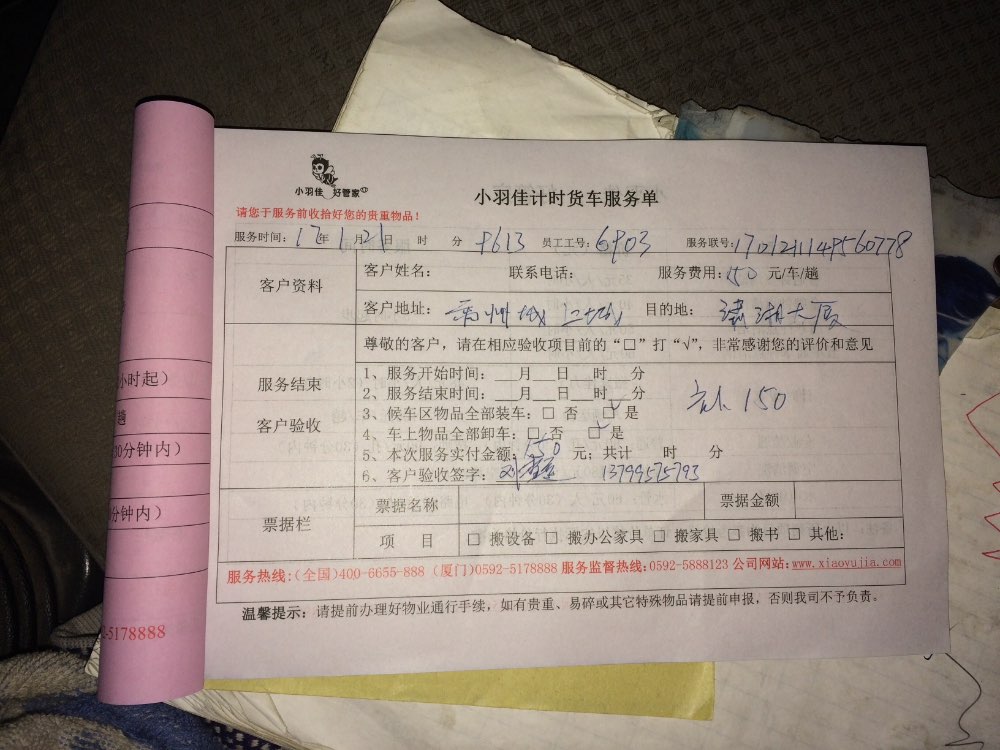 小羽佳 好管家
小羽佳计时货车服务单
请您于服务前收拾好您的贵重物品！
服务时间：17年1月21日 时 分 员工工号：6903 服务联号：
客户资料
客户姓名： 联系电话： 服务费用：150 元/车/趟
客户地址： 目的地：
尊敬的客户，请在相应验收项目前的“□”打“√”，非常感谢您的评价和意见
服务结束
客户验收
1、服务开始时间：__月__日__时__分
2、服务结束时间：__月__日__时__分
3、候车区物品全部装车：□ 否 □ 是
4、车上物品全部卸车：□ 否 □ 是
5、本次服务实付金额：150 元；共计 时 分
6、客户验收签字： 13799575793
150
票据栏
票据名称 票据金额
项 目 □ 搬设备 □ 搬办公家具 □ 搬家具 □ 搬书 □ 其他：
服务热线：（全国）400-6655-888（厦门）0592-5178888 服务监督热线：0592-5888123 公司网站：www.xiaoyujia.com
温馨提示：请提前办理好物业通行手续，如有贵重、易碎或其它特殊物品请提前申报，否则我司不予负责。
小时起）
趟
30分钟内）
分钟内）
-5178888